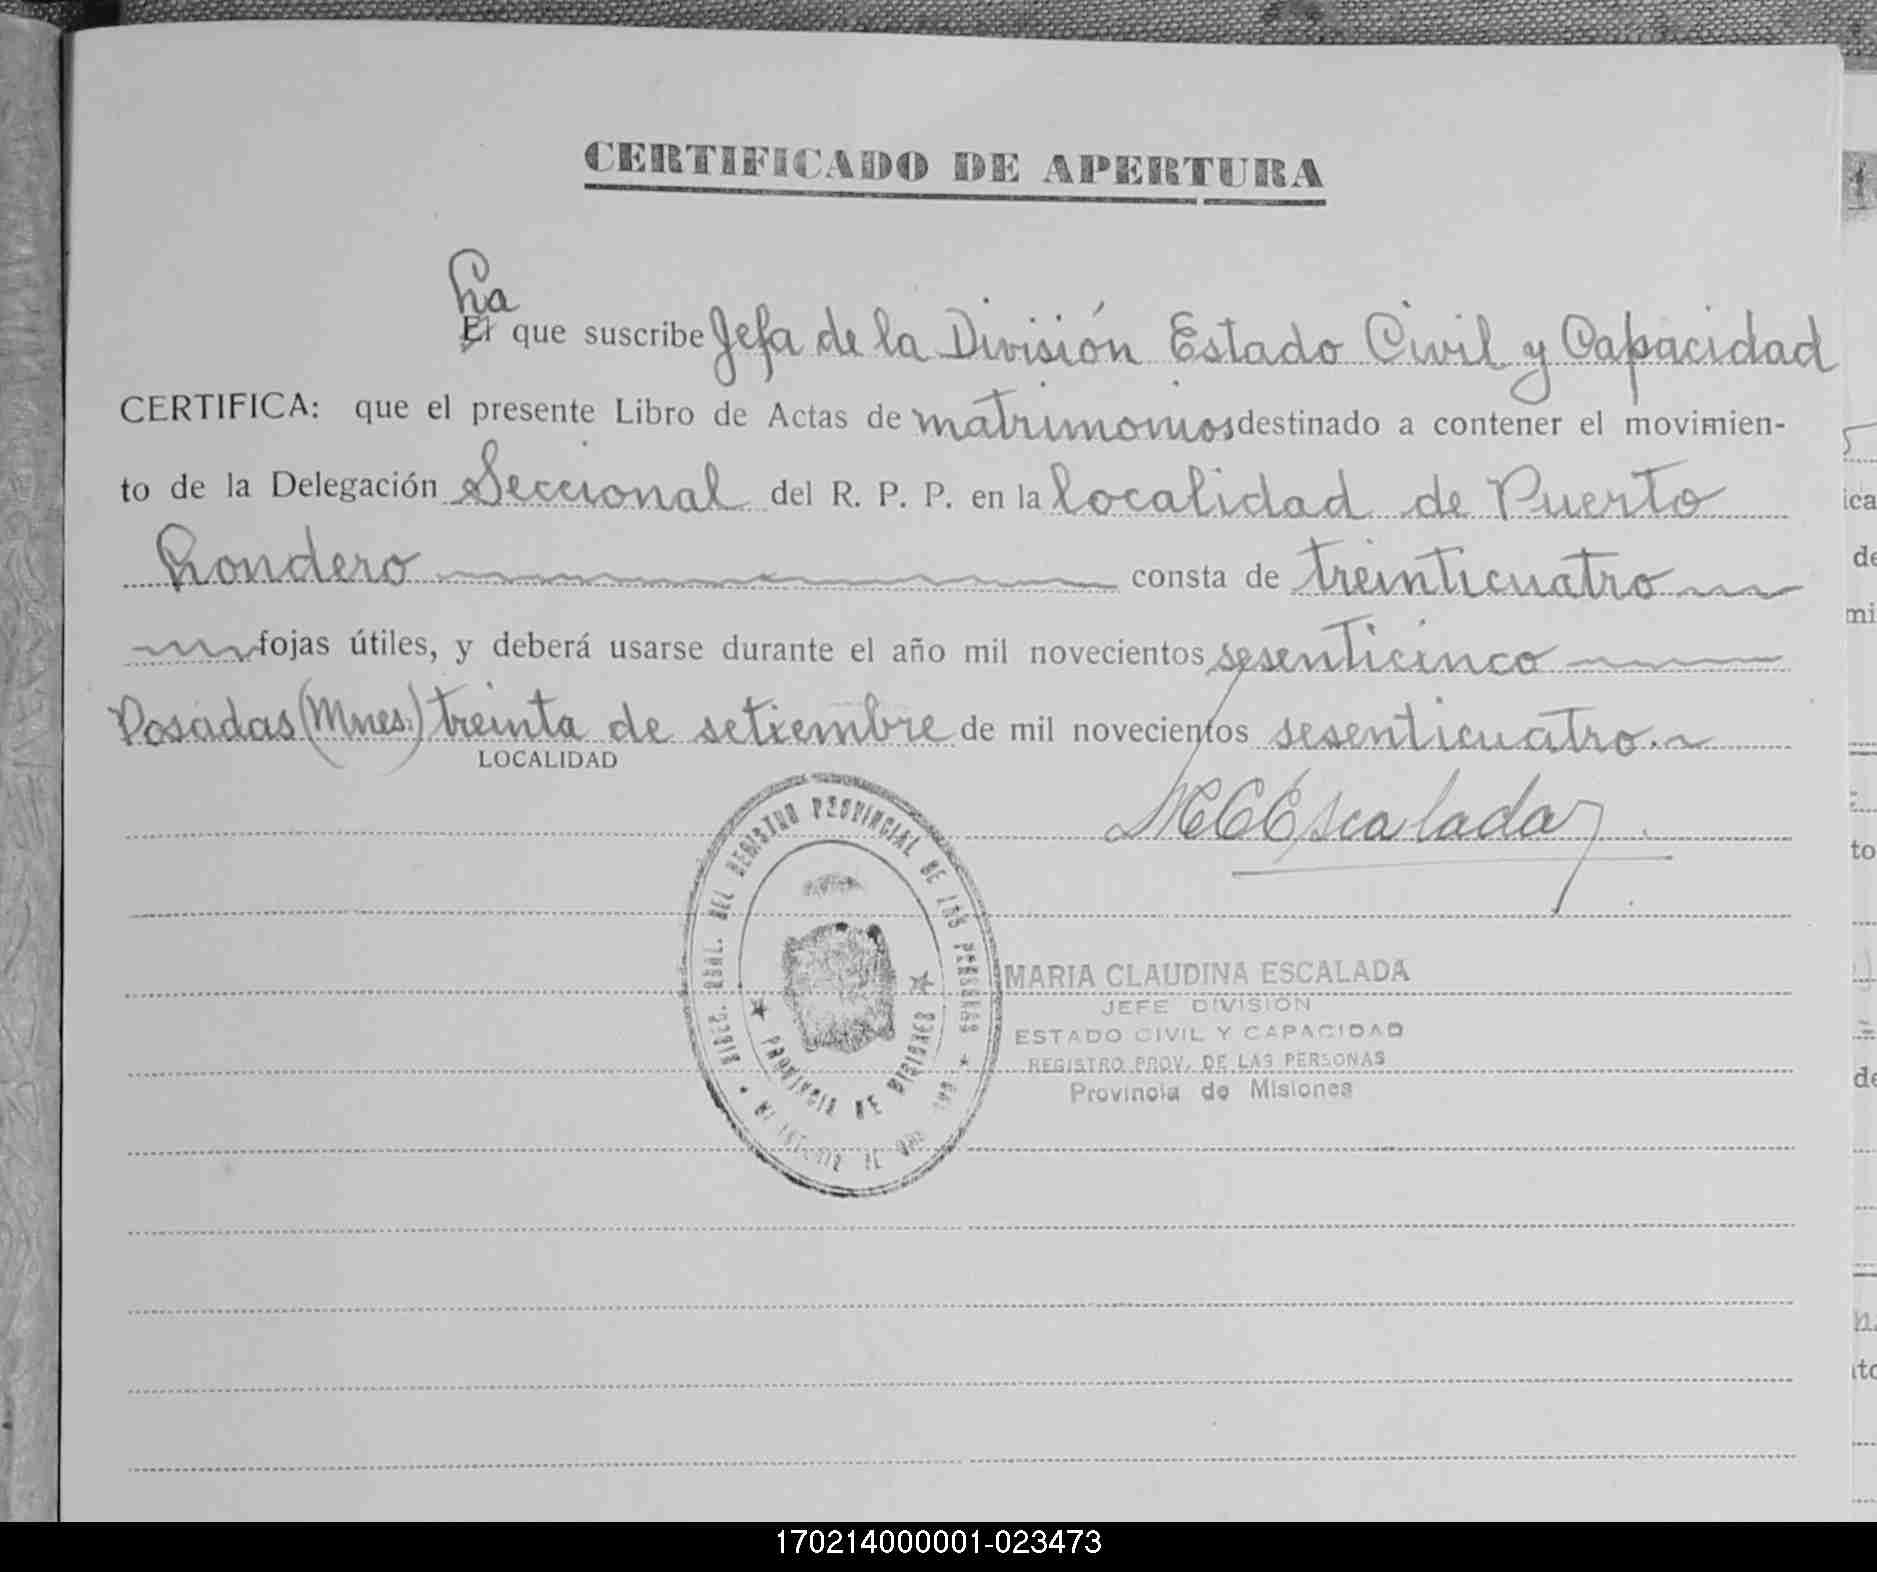 CERTIFICADO DE APERTURA
La
El que suscribe Jefa de la División Estado Civil y Capacidad
CERTIFICA: que el presente Libro de Actas de matrimonios destinado a contener el movimien-
to de la Delegación Seccional del R. P. P. en la localidad de Puerto
Londero consta de treinticuatro
fojas útiles, y deberá usarse durante el año mil novecientos sesenticinco
Posadas (Mnes.) treinta de setiembre de mil novecientos sesenticuatro.
LOCALIDAD
MCEscalada
DIREC. GRAL. DEL REGISTRO PROVINCIAL DE LAS PERSONAS
PROVINCIA DE MISIONES
MARIA CLAUDINA ESCALADA
JEFE DIVISION
ESTADO CIVIL Y CAPACIDAD
REGISTRO PROV. DE LAS PERSONAS
Provincia de Misiones
170214000001-023473